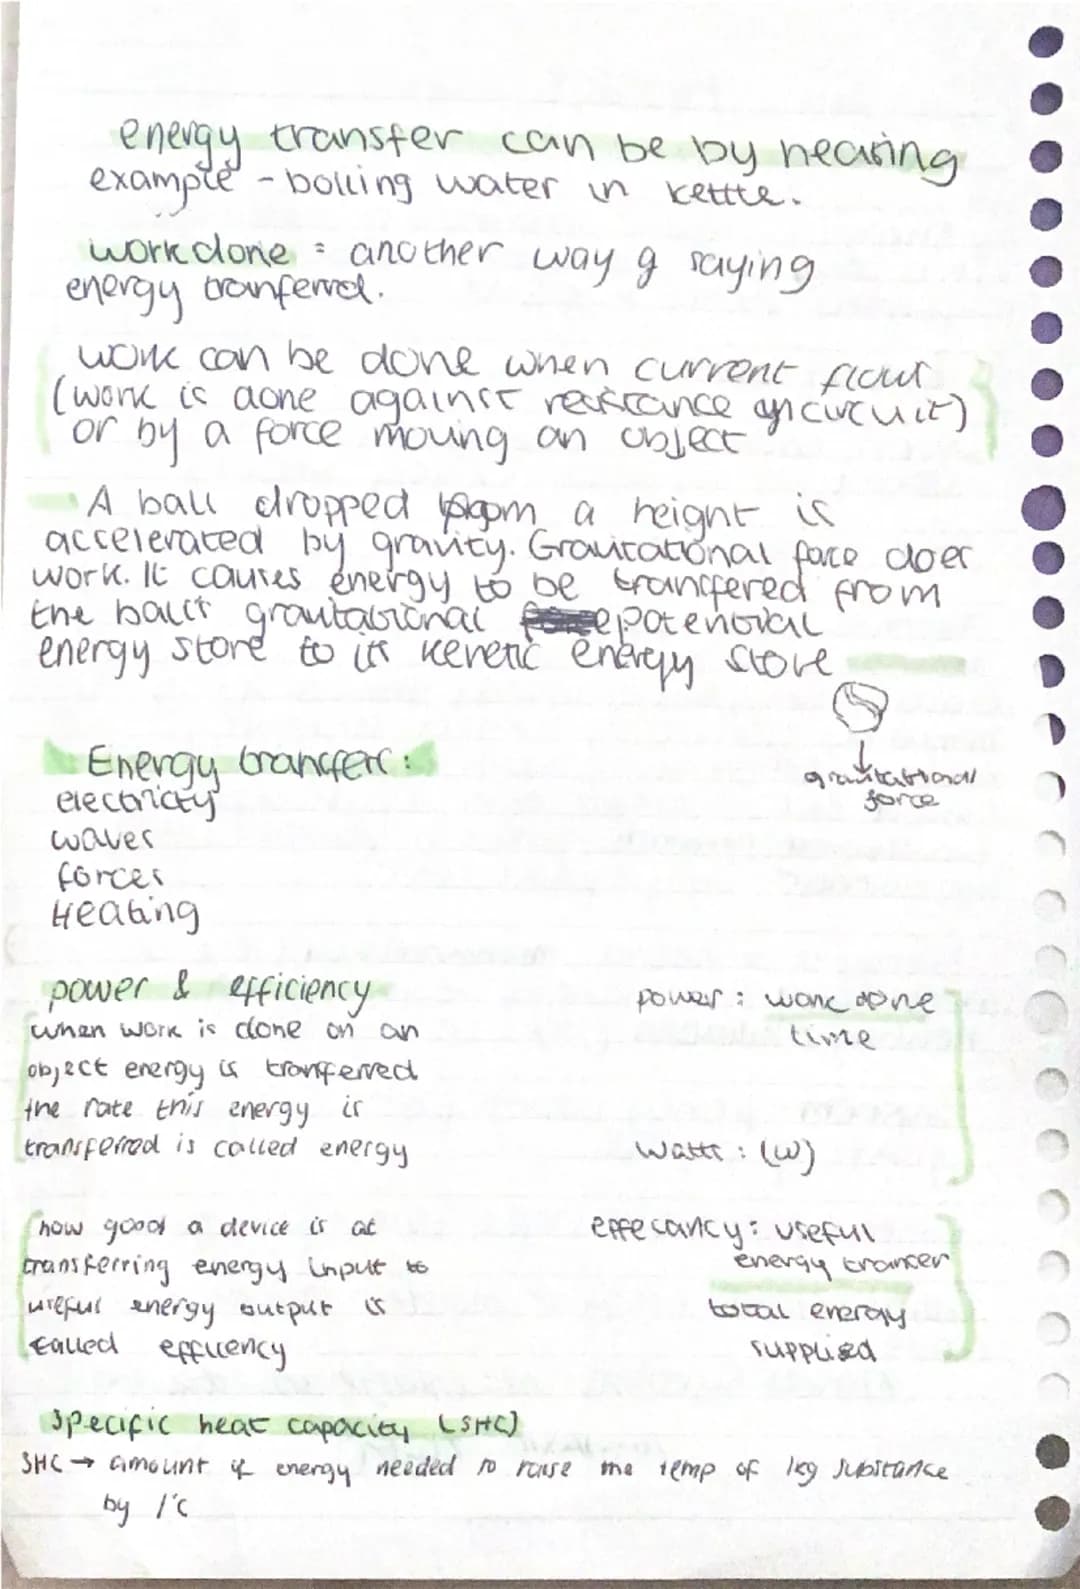 energy transfer can be by heating
example - boiling water in kettle.
work done = another way of saying
energy tranferred.
work can be done when current flows
(work is done against resistance in circuit)
or by a force moving an object
A ball dropped from a height is
accelerated by gravity. Gravitational force does
work. It causes energy to be transfered from
the ball's gravitational potential
energy store to its kenetic energy store
gravitational
force
Energy transfer:
electricity
waves
forces
Heating
power & efficiency
when work is done on an
object energy is tranferred
the rate this energy is
transferred is called energy
power = work done
time
Watts : (W)
how good a device is at
transferring energy input to
useful energy output is
called efficency
effecancy = useful
energy trancer
total energy
supplied
Specific heat capacity (SHC)
SHC → amount of energy needed to raise the temp of 1kg substance
by 1°c